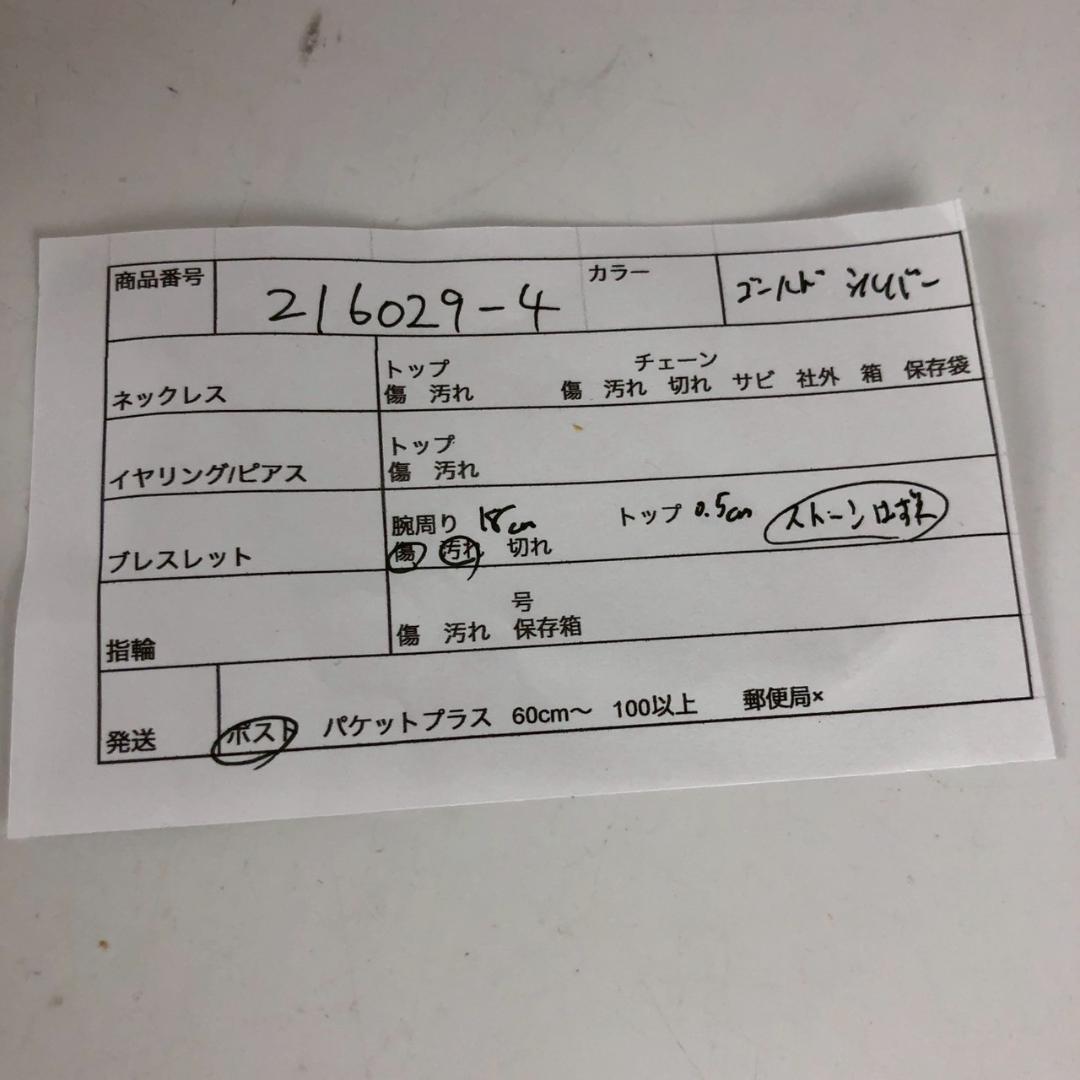 商品番号 216029-4 カラー ゴールド シルバー
ネックレス トップ チェーン
傷 汚れ 傷 汚れ 切れ サビ 社外 箱 保存袋
イヤリング/ピアス トップ
傷 汚れ
ブレスレット 腕周り 18cm トップ 0.5cm ストーンはずれ
傷 汚れ 切れ
指輪 号
傷 汚れ 保存箱
発送 ポスト パケットプラス 60cm〜 100以上 郵便局×